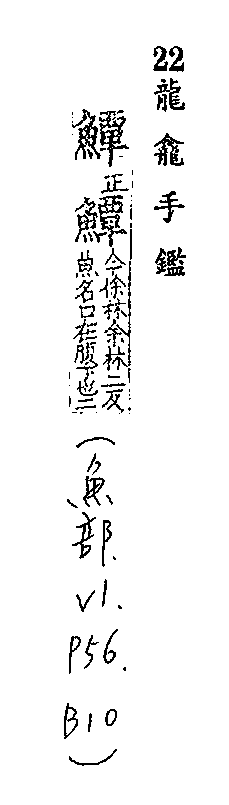 22龍龕手鑑
正鱏今徐林余林二反
魚名口在腹下也二
(魚部. V1. P56. B10)